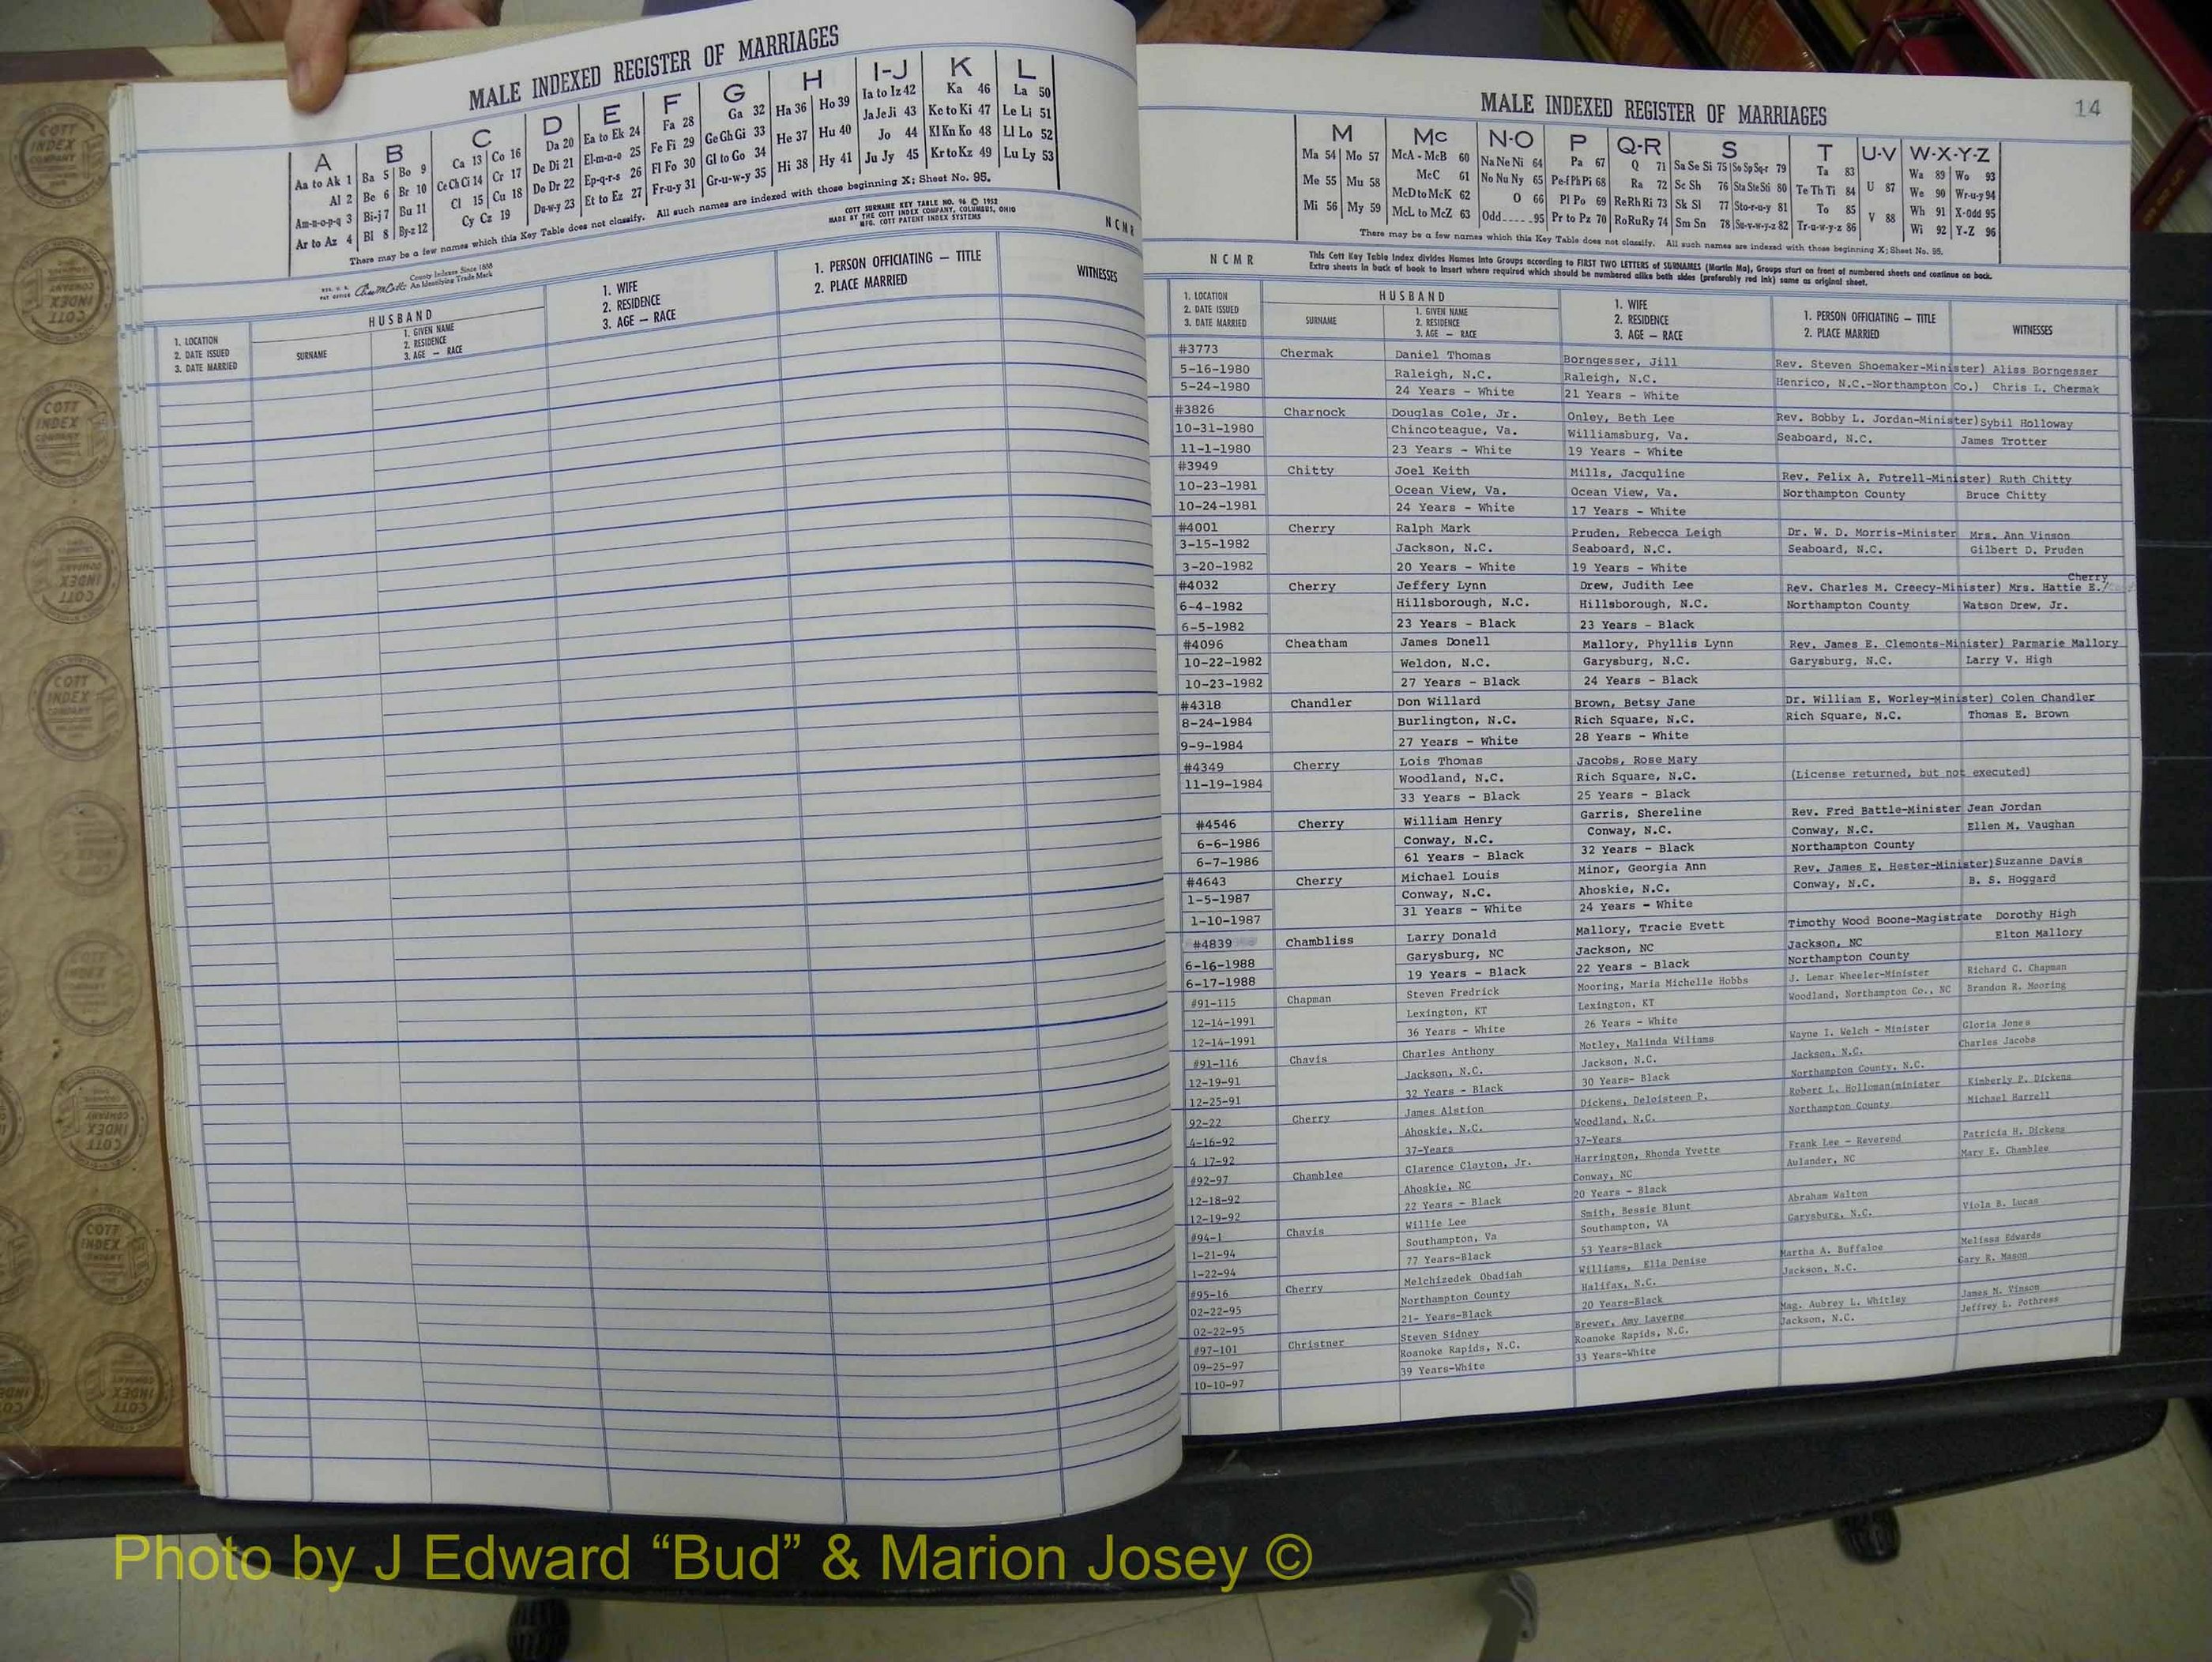 MALE INDEXED REGISTER OF MARRIAGES
A B C D E F G H I-J K L
Aa to Ak 1 Ba 5 Bo 9 Ca 13 Co 16 Da 20 Ea to Ek 24 Fa 28 Ga 32 Ha 36 Ho 39 Ia to Iz 42 Ka 46 La 50
Al 2 Be 6 Br 10 Ce Ch Ci 14 Cr 17 De Di 21 El-m-n-o 25 Fe Fi 29 Ge Gh Gi 33 He 37 Hu 40 Ja Je Ji 43 Ke to Ki 47 Le Li 51
Am-n-o-p-q 3 Bi-j 7 Bu 11 Cl 15 Cu 18 Do Dr 22 Ep-q-r-s 26 Fl Fo 30 Gl to Go 34 Hi 38 Hy 41 Jo 44 Kl Kn Ko 48 Ll Lo 52
Ar to Az 4 Bl 8 By-z 12 Cy Cz 19 Du-w-y 23 Et to Ez 27 Fr-u-y 31 Gr-u-w-y 35 Ju Jy 45 Kr to Kz 49 Lu Ly 53
There may be a few names which this Key Table does not classify. All such names are indexed with those beginning X; Sheet No. 95.
County Indexes Since 1888
An Identifying Trade Mark
COTT SURNAME KEY TABLE NO. 96 © 1952
MADE BY THE COTT INDEX COMPANY, COLUMBUS, OHIO
MFG. COTT PATENT INDEX SYSTEMS
NCMR
1. LOCATION
2. DATE ISSUED
3. DATE MARRIED
HUSBAND
SURNAME
1. GIVEN NAME
2. RESIDENCE
3. AGE — RACE
1. WIFE
2. RESIDENCE
3. AGE — RACE
1. PERSON OFFICIATING — TITLE
2. PLACE MARRIED
WITNESSES
MALE INDEXED REGISTER OF MARRIAGES
14
M Mc N-O P Q-R S T U-V W-X-Y-Z
Ma 54 Mo 57 McA - McB 60 Na Ne Ni 64 Pa 67 Q 71 Sa Se Si 75 So Sp Sq-r 79 Ta 83 U 87 Wa 89 Wo 93
Me 55 Mu 58 McC 61 No Nu Ny 65 Pe-f Ph Pi 68 Ra 72 Sc Sh 76 Sta Ste Sti 80 Te Th Ti 84 V 88 We 90 Wr-u-y 94
Mi 56 My 59 McD to McK 62 O 66 Pl Po 69 Re Rh Ri 73 Sk Sl 77 Sto-r-u-y 81 To 85 Wh 91 X-Odd 95
McL to McZ 63 Odd 95 Pr to Pz 70 Ro Ru Ry 74 Sm Sn 78 Su-v-w-y-z 82 Tr-u-w-y-z 86 Wi 92 Y-Z 96
There may be a few names which this Key Table does not classify. All such names are indexed with those beginning X; Sheet No. 95.
NCMR
This Cott Key Table Index divides Names into Groups according to FIRST TWO LETTERS of SURNAMES (Martin Ma), Groups start on front of numbered sheets and continue on back.
Extra sheets in back of book to insert where required which should be numbered alike both sides (preferably red ink) same as original sheet.
1. LOCATION
2. DATE ISSUED
3. DATE MARRIED
HUSBAND
SURNAME
1. GIVEN NAME
2. RESIDENCE
3. AGE — RACE
1. WIFE
2. RESIDENCE
3. AGE — RACE
1. PERSON OFFICIATING — TITLE
2. PLACE MARRIED
WITNESSES
#3773 Chermak Daniel Thomas Borngesser, Jill Rev. Steven Shoemaker-Minister) Aliss Borngesser
5-16-1980 Raleigh, N.C. Raleigh, N.C. Henrico, N.C.-Northampton Co.) Chris L. Chermak
5-24-1980 24 Years - White 21 Years - White
#3826 Charnock Douglas Cole, Jr. Onley, Beth Lee Rev. Bobby L. Jordan-Minister) Sybil Holloway
10-31-1980 Chincoteague, Va. Williamsburg, Va. Seaboard, N.C. James Trotter
11-1-1980 23 Years - White 19 Years - White
#3949 Chitty Joel Keith Mills, Jacquline Rev. Felix A. Futrell-Minister) Ruth Chitty
10-23-1981 Ocean View, Va. Ocean View, Va. Northampton County Bruce Chitty
10-24-1981 24 Years - White 17 Years - White
#4001 Cherry Ralph Mark Pruden, Rebecca Leigh Dr. W. D. Morris-Minister Mrs. Ann Vinson
3-15-1982 Jackson, N.C. Seaboard, N.C. Seaboard, N.C. Gilbert D. Pruden
3-20-1982 20 Years - White 19 Years - White
Cherry
#4032 Cherry Jeffery Lynn Drew, Judith Lee Rev. Charles M. Creecy-Minister) Mrs. Hattie E./
6-4-1982 Hillsborough, N.C. Hillsborough, N.C. Northampton County Watson Drew, Jr.
6-5-1982 23 Years - Black 23 Years - Black
#4096 Cheatham James Donell Mallory, Phyllis Lynn Rev. James E. Clemonts-Minister) Parmarie Mallory
10-22-1982 Weldon, N.C. Garysburg, N.C. Garysburg, N.C. Larry V. High
10-23-1982 27 Years - Black 24 Years - Black
#4318 Chandler Don Willard Brown, Betsy Jane Dr. William E. Worley-Minister) Colen Chandler
8-24-1984 Burlington, N.C. Rich Square, N.C. Rich Square, N.C. Thomas E. Brown
9-9-1984 27 Years - White 28 Years - White
#4349 Cherry Lois Thomas Jacobs, Rose Mary
11-19-1984 Woodland, N.C. Rich Square, N.C. (License returned, but not executed)
33 Years - Black 25 Years - Black
#4546 Cherry William Henry Garris, Shereline Rev. Fred Battle-Minister Jean Jordan
6-6-1986 Conway, N.C. Conway, N.C. Conway, N.C. Ellen M. Vaughan
6-7-1986 61 Years - Black 32 Years - Black Northampton County
#4643 Cherry Michael Louis Minor, Georgia Ann Rev. James E. Hester-Minister) Suzanne Davis
1-5-1987 Conway, N.C. Ahoskie, N.C. Conway, N.C. B. S. Hoggard
1-10-1987 31 Years - White 24 Years - White
#4839 Chambliss Larry Donald Mallory, Tracie Evett Timothy Wood Boone-Magistrate Dorothy High
6-16-1988 Garysburg, NC Jackson, NC Jackson, NC Elton Mallory
6-17-1988 19 Years - Black 22 Years - Black Northampton County
#91-115 Chapman Steven Fredrick Mooring, Maria Michelle Hobbs J. Lemar Wheeler-Minister Richard C. Chapman
12-14-1991 Lexington, KT Lexington, KT Woodland, Northampton Co., NC Brandon R. Mooring
12-14-1991 36 Years - White 26 Years - White
#91-116 Chavis Charles Anthony Motley, Malinda Wiliams Wayne I. Welch - Minister Gloria Jones
12-19-91 Jackson, N.C. Jackson, N.C. Jackson, N.C. Charles Jacobs
12-25-91 32 Years - Black 30 Years- Black Northampton County, N.C.
92-22 Cherry James Alstion Dickens, Deloisteen P. Robert L. Holloman(minister Kimberly P. Dickens
4-16-92 Ahoskie, N.C. Woodland, N.C. Northampton County Michael Harrell
4 17-92 37-Years 37-Years
#92-97 Chamblee Clarence Clayton, Jr. Harrington, Rhonda Yvette Frank Lee - Reverend Patricia H. Dickens
12-18-92 Ahoskie, NC Conway, NC Aulander, NC Mary E. Chamblee
12-19-92 22 Years - Black 20 Years - Black
#94-1 Chavis Willie Lee Smith, Bessie Blunt Abraham Walton Viola B. Lucas
1-21-94 Southampton, Va Southampton, VA Garysburg, N.C.
1-22-94 77 Years-Black 53 Years-Black
#95-16 Cherry Melchizedek Obadiah Williams, Ella Denise Martha A. Buffaloe Melissa Edwards
02-22-95 Northampton County Halifax, N.C. Jackson, N.C. Gary R. Mason
02-22-95 21- Years-Black 20 Years-Black
#97-101 Christner Steven Sidney Brewer, Amy Laverne Mag. Aubrey L. Whitley James N. Vinson
09-25-97 Roanoke Rapids, N.C. Roanoke Rapids, N.C. Jackson, N.C. Jeffrey L. Pothress
10-10-97 39 Years-White 33 Years-White
Photo by J Edward “Bud” & Marion Josey ©